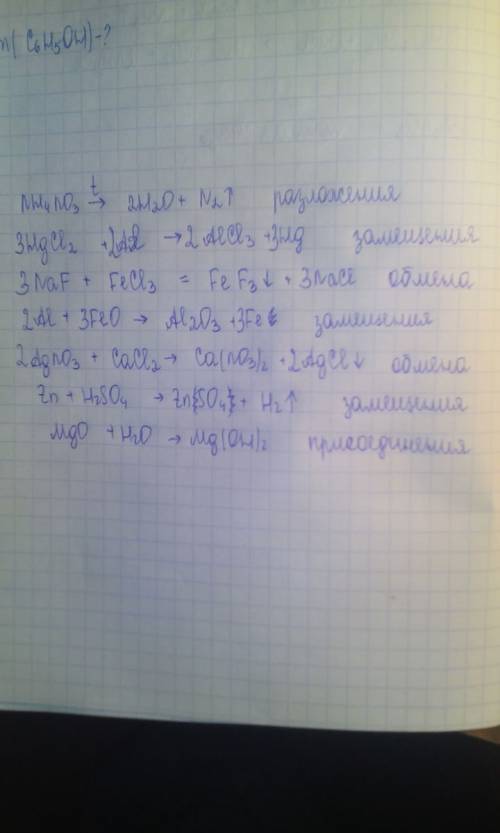 n(C₆H₅OH)-?
NH₄NO₃ t→ 2H₂O + N₂↑ разложения
3HgCl₂ + 2Al → 2AlCl₃ + 3Hg замещения
3NaF + FeCl₃ = FeF₃↓ + 3NaCl обмена
2Al + 3FeO → Al₂O₃ + 3Fe замещения
2AgNO₃ + CaCl₂ → Ca(NO₃)₂ + 2AgCl↓ обмена
Zn + H₂SO₄ → ZnSO₄ + H₂↑ замещения
MgO + H₂O → Mg(OH)₂ присоединения